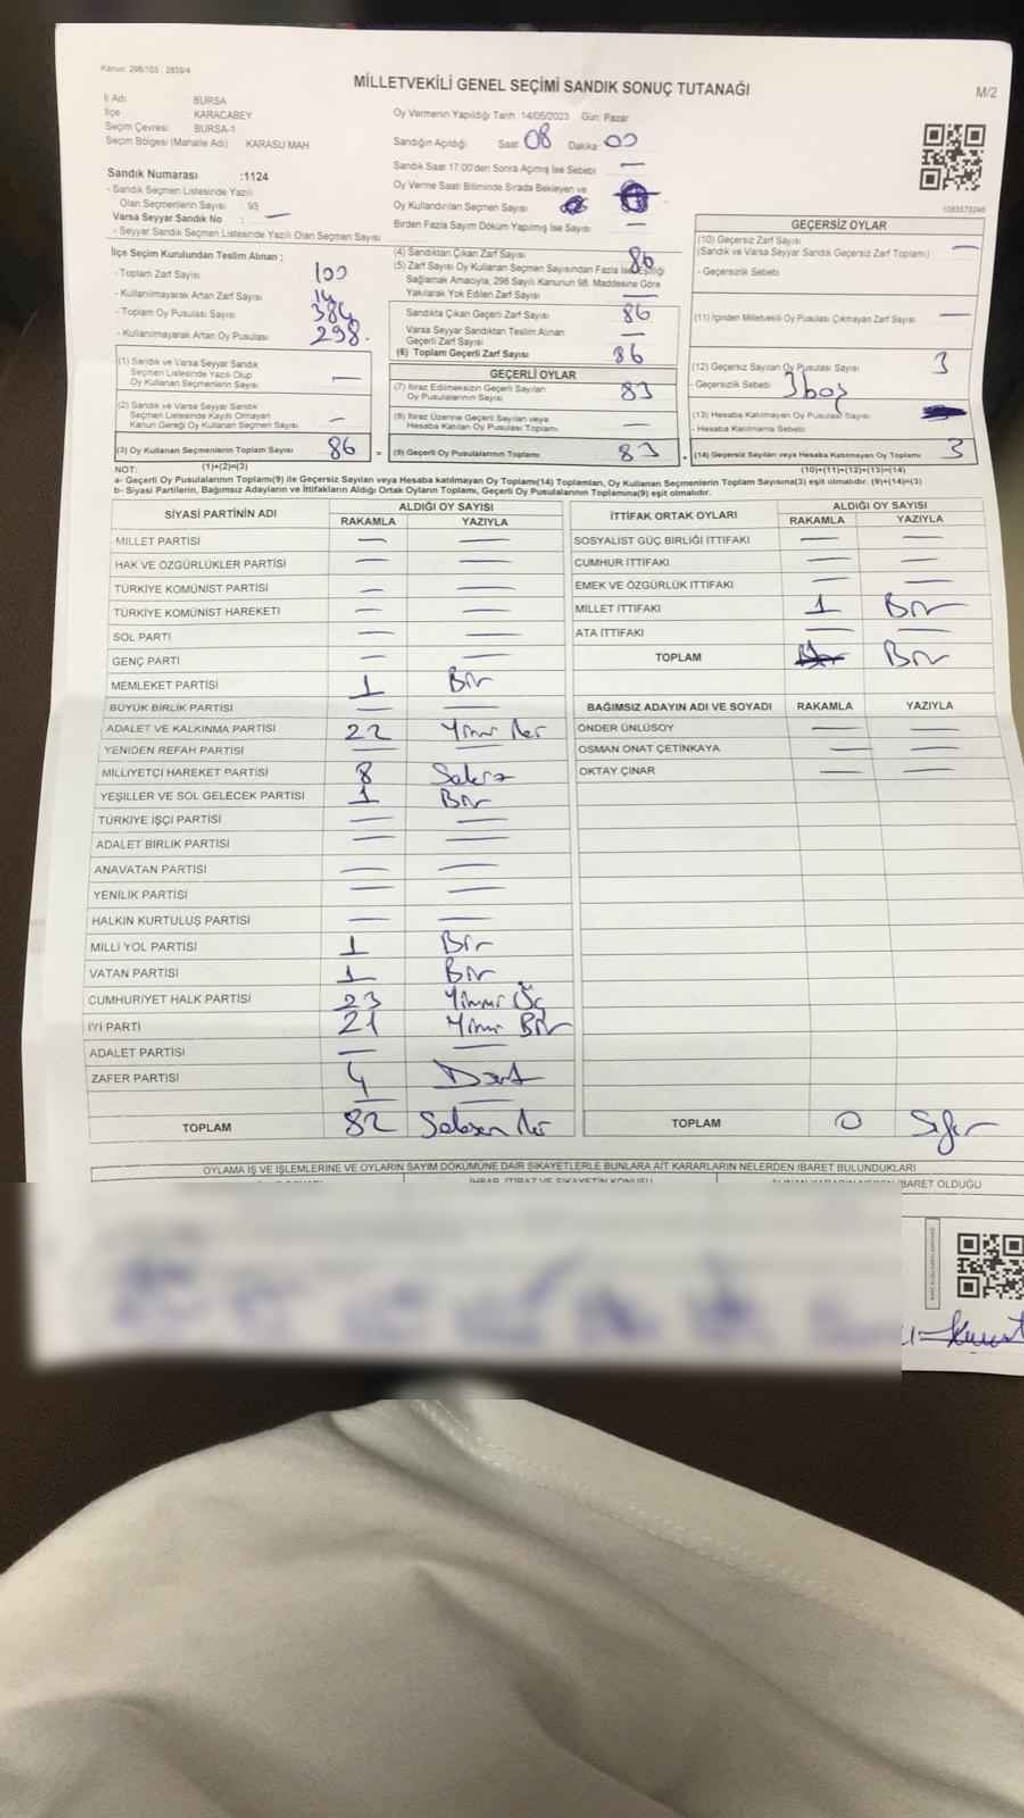 Kanun: 298/105 : 2839/4
MİLLETVEKİLİ GENEL SEÇİMİ SANDIK SONUÇ TUTANAĞI
M/2
İl Adı BURSA
İlçe KARACABEY
Seçim Çevresi BURSA-1
Seçim Bölgesi (Mahalle Adı) KARASU MAH
Oy Vermenin Yapıldığı Tarih 14/05/2023 Gün: Pazar
Sandığın Açıldığı Saat 08 Dakika 00
Sandık Saat 17:00'den Sonra Açılmış İse Sebebi —
Oy Verme Saati Bitiminde Sırada Bekleyen ve
Oy Kullandırılan Seçmen Sayısı
Birden Fazla Sayım Döküm Yapılmış İse Sayısı —
Sandık Numarası :1124
- Sandık Seçmen Listesinde Yazılı
Olan Seçmenlerin Sayısı : 93
Varsa Seyyar Sandık No : —
- Seyyar Sandık Seçmen Listesinde Yazılı Olan Seçmen Sayısı
İlçe Seçim Kurulundan Teslim Alınan :
- Toplam Zarf Sayısı 100
- Kullanılmayarak Artan Zarf Sayısı 14
- Toplam Oy Pusulası Sayısı 384
- Kullanılmayarak Artan Oy Pusulası 298
(1) Sandık ve Varsa Seyyar Sandık
Seçmen Listesinde Yazılı Olup
Oy Kullanan Seçmenlerin Sayısı —
(2) Sandık ve Varsa Seyyar Sandık
Seçmen Listesinde Kayıtlı Olmayan
Kanun Gereği Oy Kullanan Seçmen Sayısı —
(3) Oy Kullanan Seçmenlerin Toplam Sayısı 86
(4) Sandıktan Çıkan Zarf Sayısı 86
(5) Zarf Sayısı Oy Kullanan Seçmen Sayısından Fazla İse Eşitliği
Sağlamak Amacıyla, 298 Sayılı Kanunun 98. Maddesine Göre
Yakılarak Yok Edilen Zarf Sayısı —
Sandıkta Çıkan Geçerli Zarf Sayısı 86
Varsa Seyyar Sandıktan Teslim Alınan
Geçerli Zarf Sayısı —
(6) Toplam Geçerli Zarf Sayısı 86
GEÇERLİ OYLAR
(7) İtiraz Edilmeksizin Geçerli Sayılan
Oy Pusulalarının Sayısı 83
(8) İtiraz Üzerine Geçerli Sayılan veya
Hesaba Katılan Oy Pusulası Toplamı —
(9) Geçerli Oy Pusulalarının Toplamı 83
GEÇERSİZ OYLAR
(10) Geçersiz Zarf Sayısı
(Sandık ve Varsa Seyyar Sandık Geçersiz Zarf Toplamı) —
- Geçersizlik Sebebi
(11) İçinden Milletvekili Oy Pusulası Çıkmayan Zarf Sayısı —
(12) Geçersiz Sayılan Oy Pusulası Sayısı 3
- Geçersizlik Sebebi 3 boş
(13) Hesaba Katılmayan Oy Pusulası Sayısı
- Hesaba Katılmama Sebebi
(14) Geçersiz Sayılan veya Hesaba Katılmayan Oy Toplamı 3
NOT: (1)+(2)=(3) (10)+(11)+(12)+(13)=(14)
a- Geçerli Oy Pusulalarının Toplamı(9) ile Geçersiz Sayılan veya Hesaba katılmayan Oy Toplamı(14) Toplamları, Oy Kullanan Seçmenlerin Toplam Sayısına(3) eşit olmalıdır. (9)+(14)=(3)
b- Siyasi Partilerin, Bağımsız Adayların ve İttifakların Aldığı Ortak Oyların Toplamı, Geçerli Oy Pusulalarının Toplamına(9) eşit olmalıdır.
SİYASİ PARTİNİN ADI ALDIĞI OY SAYISI
RAKAMLA YAZIYLA
MİLLET PARTİSİ — —
HAK VE ÖZGÜRLÜKLER PARTİSİ — —
TÜRKİYE KOMÜNİST PARTİSİ — —
TÜRKİYE KOMÜNİST HAREKETİ — —
SOL PARTİ — —
GENÇ PARTİ — —
MEMLEKET PARTİSİ 1 Bir
BÜYÜK BİRLİK PARTİSİ — —
ADALET VE KALKINMA PARTİSİ 22 Yirmi iki
YENİDEN REFAH PARTİSİ — —
MİLLİYETÇİ HAREKET PARTİSİ 8 Sekiz
YEŞİLLER VE SOL GELECEK PARTİSİ 1 Bir
TÜRKİYE İŞÇİ PARTİSİ — —
ADALET BİRLİK PARTİSİ — —
ANAVATAN PARTİSİ — —
YENİLİK PARTİSİ — —
HALKIN KURTULUŞ PARTİSİ — —
MİLLİ YOL PARTİSİ 1 Bir
VATAN PARTİSİ 1 Bir
CUMHURİYET HALK PARTİSİ 23 Yirmi Üç
İYİ PARTİ 21 Yirmi Bir
ADALET PARTİSİ — —
ZAFER PARTİSİ 4 Dört
TOPLAM 82 Seksen iki
İTTİFAK ORTAK OYLARI ALDIĞI OY SAYISI
RAKAMLA YAZIYLA
SOSYALİST GÜÇ BİRLİĞİ İTTİFAKI — —
CUMHUR İTTİFAKI — —
EMEK VE ÖZGÜRLÜK İTTİFAKI — —
MİLLET İTTİFAKI 1 Bir
ATA İTTİFAKI — —
TOPLAM Bir
BAĞIMSIZ ADAYIN ADI VE SOYADI RAKAMLA YAZIYLA
ÖNDER ÜNLÜSOY — —
OSMAN ONAT ÇETİNKAYA — —
OKTAY ÇINAR — —
TOPLAM 0 Sıfır
OYLAMA İŞ VE İŞLEMLERİNE VE OYLARIN SAYIM DÖKÜMÜNE DAİR ŞİKAYETLERLE BUNLARA AİT KARARLARIN NELERDEN İBARET BULUNDUKLARI
İHBAR, İTİRAZ VE ŞİKAYETİN KONUSU
İBARET OLDUĞU